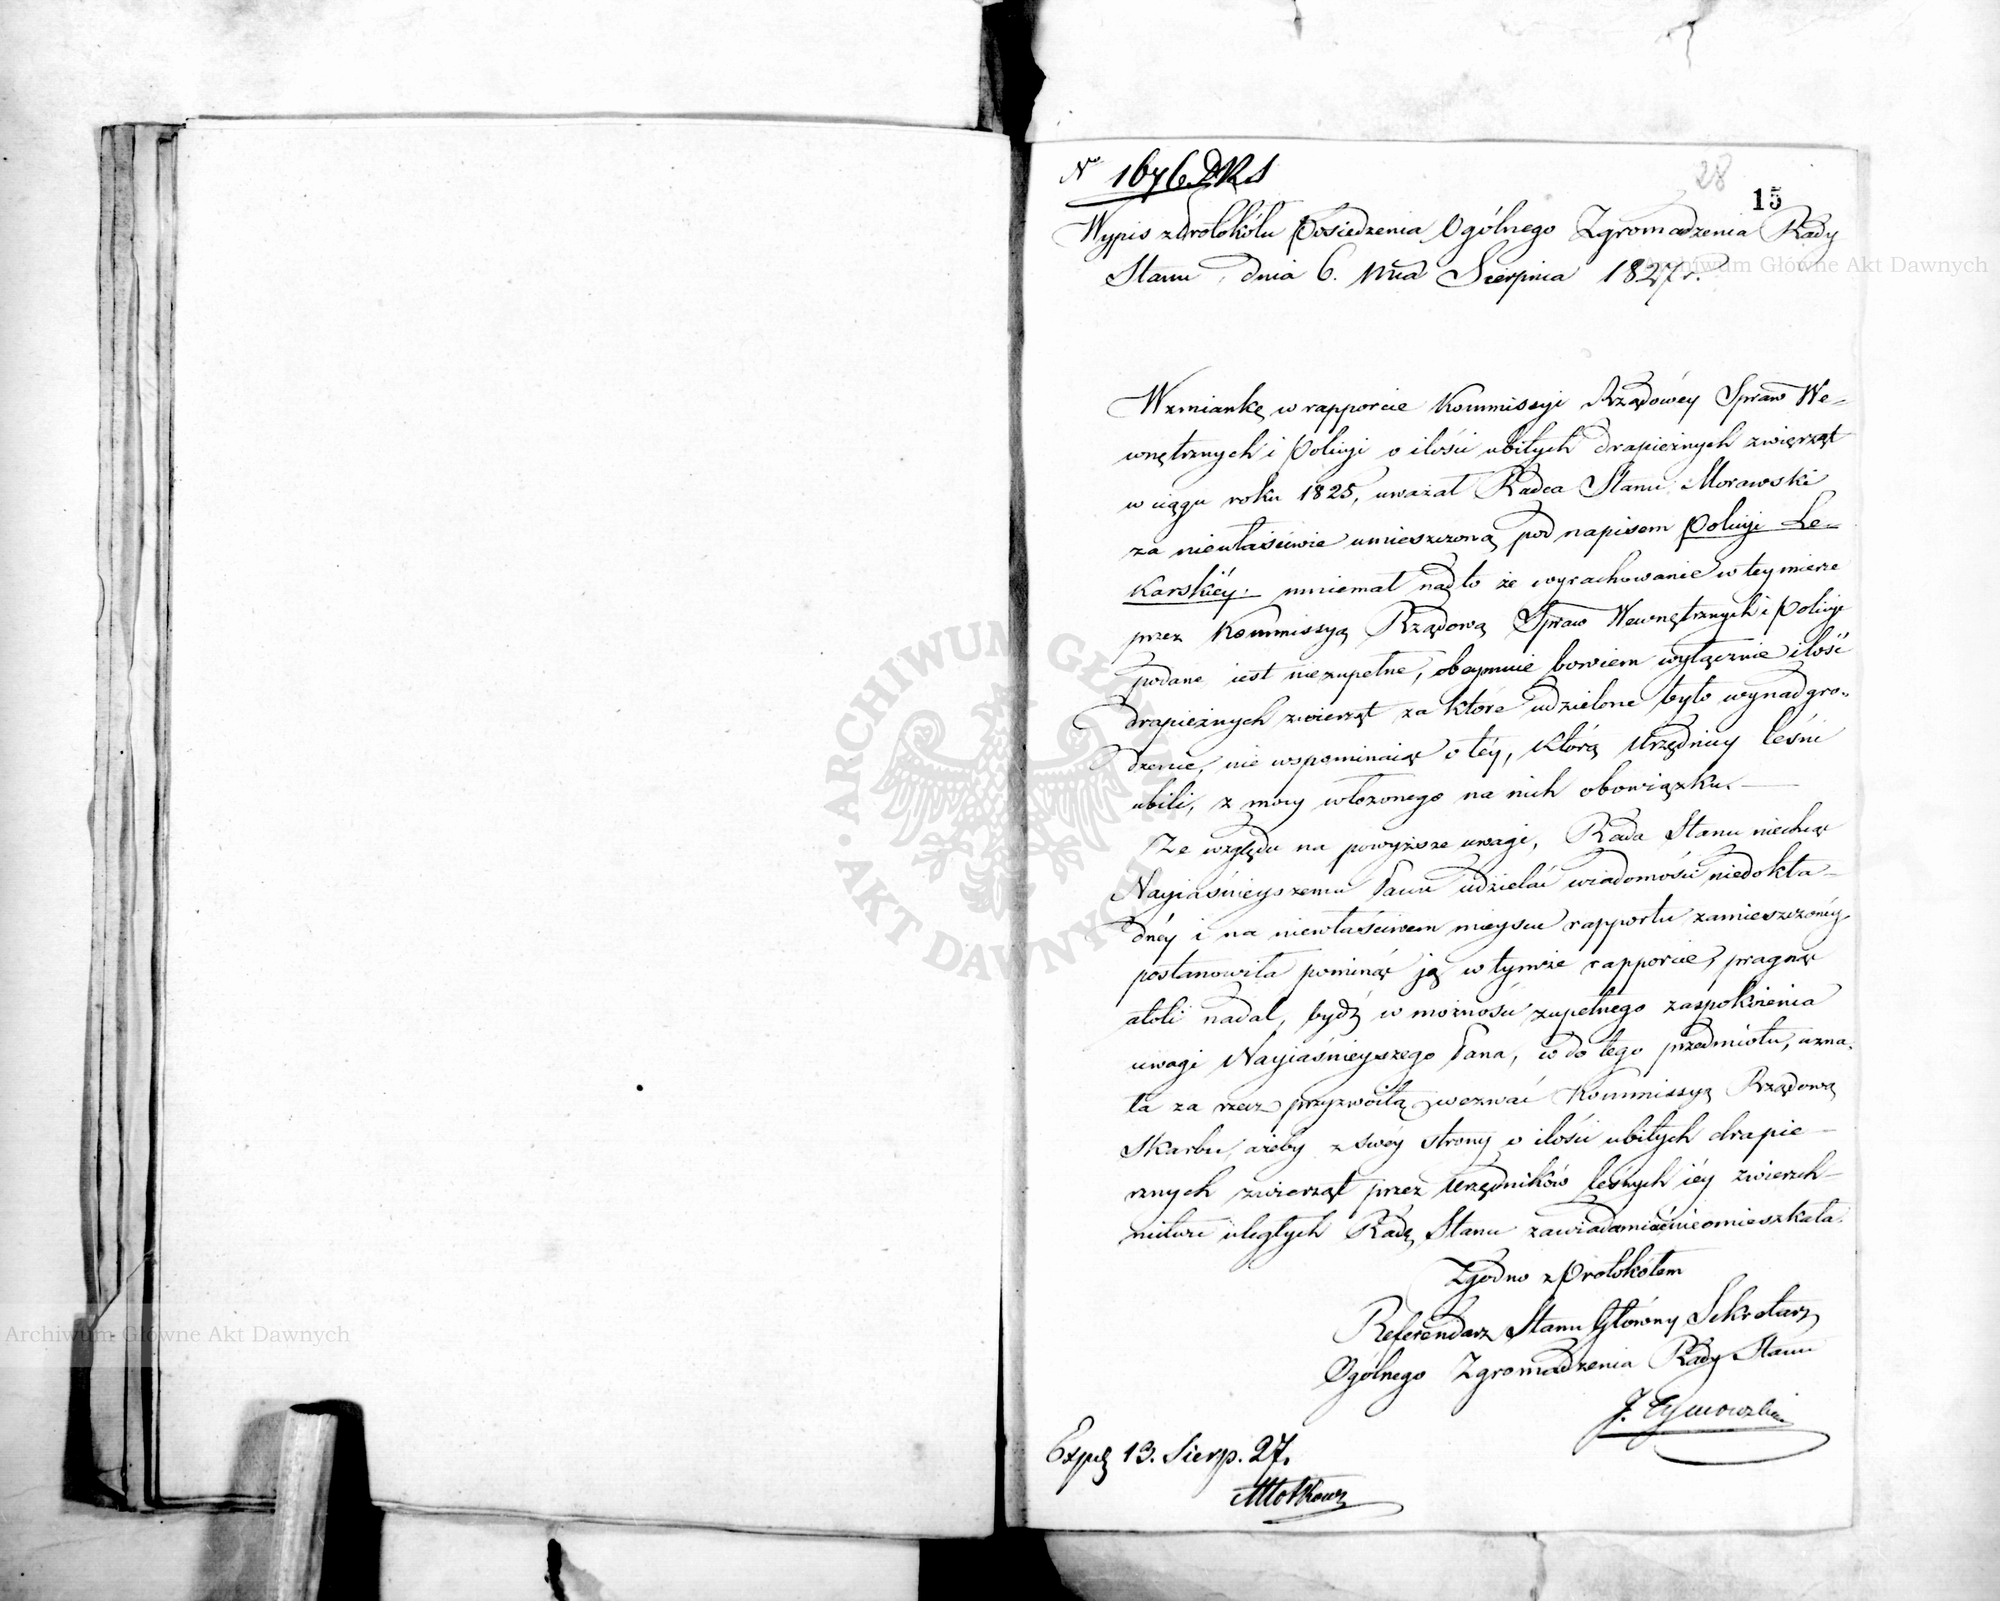 No 1676 D.R.S
28
15
Wypis z Protokółu Posiedzenia Ogólnego Zgromadzenia Rady
Stanu, dnia 6. Mca Sierpnia 1827 r.
Archiwum Główne Akt Dawnych
Wzmiankę w rapporcie Kommissyi Rządowéy Spraw We-
wnętrznych i Policyi o ilości ubitych drapieżnych zwierząt
w ciągu roku 1825, uważał Radca Stanu Morawski
za niewłaściwie umieszczoną pod napisem Policyi Le-
karskiéy. mniemał nadto że wyrachowanie w tey mierze
przez Kommissyą Rządową Spraw Wewnętrznych i Policyi
podane iest niezupełne, obeymuie bowiem wyłącznie ilość
drapieżnych zwierząt za które udzielone było wynadgro-
dzenie, nie wspominaiąc o téy, którą Urzędnicy leśni
ubili, z mocy włożonego na nich obowiązku.
Ze względu na powyższe uwagi, Rada Stanu niechcąc
Nayiaśnieyszemu Panu udzielać wiadomości niedokła-
dnéy i na niewłaściwem mieyscu rapportu zamieszczonéy,
postanowiła pominąć ją w tymże rapporcie, pragnąc
atoli nadal, bydź w możności zupełnego zaspokoienia
uwagi Nayiaśnieyszego Pana, co do tego przedmiotu, uzna-
ła za rzecz przyzwoitą wezwać Kommissyą Rządową
Skarbu, ażeby z swey strony o ilości ubitych drapie-
żnych zwierząt przez Urzędników leśnych iéy zwierzch-
nictwu uległych Radę Stanu zawiadamiać nieomieszkała.
Zgodno z Protokółem
Referendarz Stanu Główny Sekretarz
Ogólnego Zgromadzenia Rady Stanu
J. Tymowski
Exped 13. Sierp. 27.
ARCHIWUM GŁÓWNE AKT DAWNYCH
Archiwum Główne Akt Dawnych